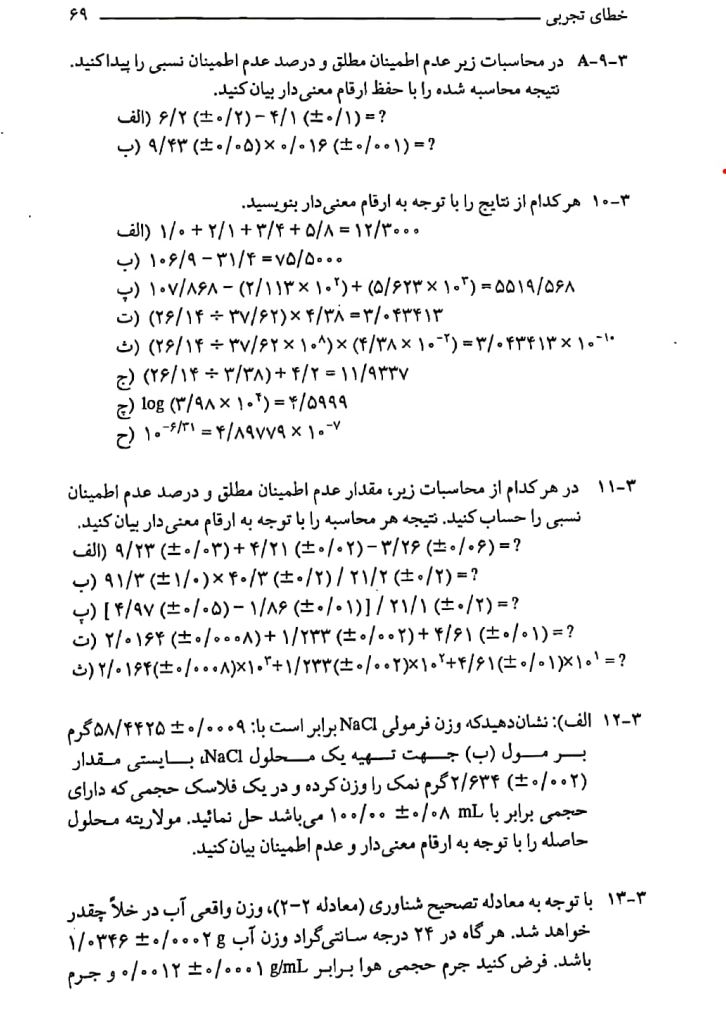 خطای تجربی ۶۹
۳-۹-A در محاسبات زیر عدم اطمینان مطلق و درصد عدم اطمینان نسبی را پیدا کنید.
نتیجه محاسبه شده را با حفظ ارقام معنی‌دار بیان کنید.
الف) ۶/۲ (±۰/۲) − ۴/۱ (±۰/۱) = ?
ب) ۹/۴۳ (±۰/۰۵) × ۰/۰۱۶ (±۰/۰۰۱) = ?
۳-۱۰ هر کدام از نتایج را با توجه به ارقام معنی‌دار بنویسید.
الف) ۱/۰ + ۲/۱ + ۳/۴ + ۵/۸ = ۱۲/۳۰۰۰
ب) ۱۰۶/۹ − ۳۱/۴ = ۷۵/۵۰۰۰
پ) ۱۰۷/۸۶۸ − (۲/۱۱۳ × ۱۰²) + (۵/۶۲۳ × ۱۰³) = ۵۵۱۹/۵۶۸
ت) (۲۶/۱۴ ÷ ۳۷/۶۲) × ۴/۳۸ = ۳/۰۴۳۴۱۳
ث) (۲۶/۱۴ ÷ ۳۷/۶۲ × ۱۰⁸) × (۴/۳۸ × ۱۰⁻²) = ۳/۰۴۳۴۱۳ × ۱۰⁻¹⁰
ج) (۲۶/۱۴ ÷ ۳/۳۸) + ۴/۲ = ۱۱/۹۳۳۷
چ) log (۳/۹۸ × ۱۰⁴) = ۴/۵۹۹۹
ح) ۱۰⁻⁶/³¹ = ۴/۸۹۷۷۹ × ۱۰⁻⁷
۳-۱۱ در هر کدام از محاسبات زیر، مقدار عدم اطمینان مطلق و درصد عدم اطمینان
نسبی را حساب کنید. نتیجه هر محاسبه را با توجه به ارقام معنی‌دار بیان کنید.
الف) ۹/۲۳ (±۰/۰۳) + ۴/۲۱ (±۰/۰۲) − ۳/۲۶ (±۰/۰۶) = ?
ب) ۹۱/۳ (±۱/۰) × ۴۰/۳ (±۰/۲) / ۲۱/۲ (±۰/۲) = ?
پ) [۴/۹۷ (±۰/۰۵) − ۱/۸۶ (±۰/۰۱)] / ۲۱/۱ (±۰/۲) = ?
ت) ۲/۰۱۶۴ (±۰/۰۰۰۸) + ۱/۲۳۳ (±۰/۰۰۲) + ۴/۶۱ (±۰/۰۱) = ?
ث) ۲/۰۱۶۴(±۰/۰۰۰۸)×۱۰³+۱/۲۳۳(±۰/۰۰۲)×۱۰²+۴/۶۱(±۰/۰۱)×۱۰¹ = ?
۳-۱۲ الف): نشان‌دهیدکه وزن فرمولی NaCl برابر است با: ۵۸/۴۴۲۵ ±۰/۰۰۰۹گرم
بر مول (ب) جهت تهیه یک محلول NaCl، بایستی مقدار
۲/۶۳۴ (±۰/۰۰۲) گرم نمک را وزن کرده و در یک فلاسک حجمی که دارای
حجمی برابر با ۱۰۰/۰۰ ±۰/۰۸ mL می‌باشد حل نمائید. مولاریته محلول
حاصله را با توجه به ارقام معنی‌دار و عدم اطمینان بیان کنید.
۳-۱۳ با توجه به معادله تصحیح شناوری (معادله ۲-۲)، وزن واقعی آب در خلأ چقدر
خواهد شد. هر گاه در ۲۴ درجه سانتی‌گراد وزن آب ۱/۰۳۴۶ ±۰/۰۰۰۲ g
باشد. فرض کنید جرم حجمی هوا برابر ۰/۰۰۱۲ ±۰/۰۰۰۱ g/mL و جرم